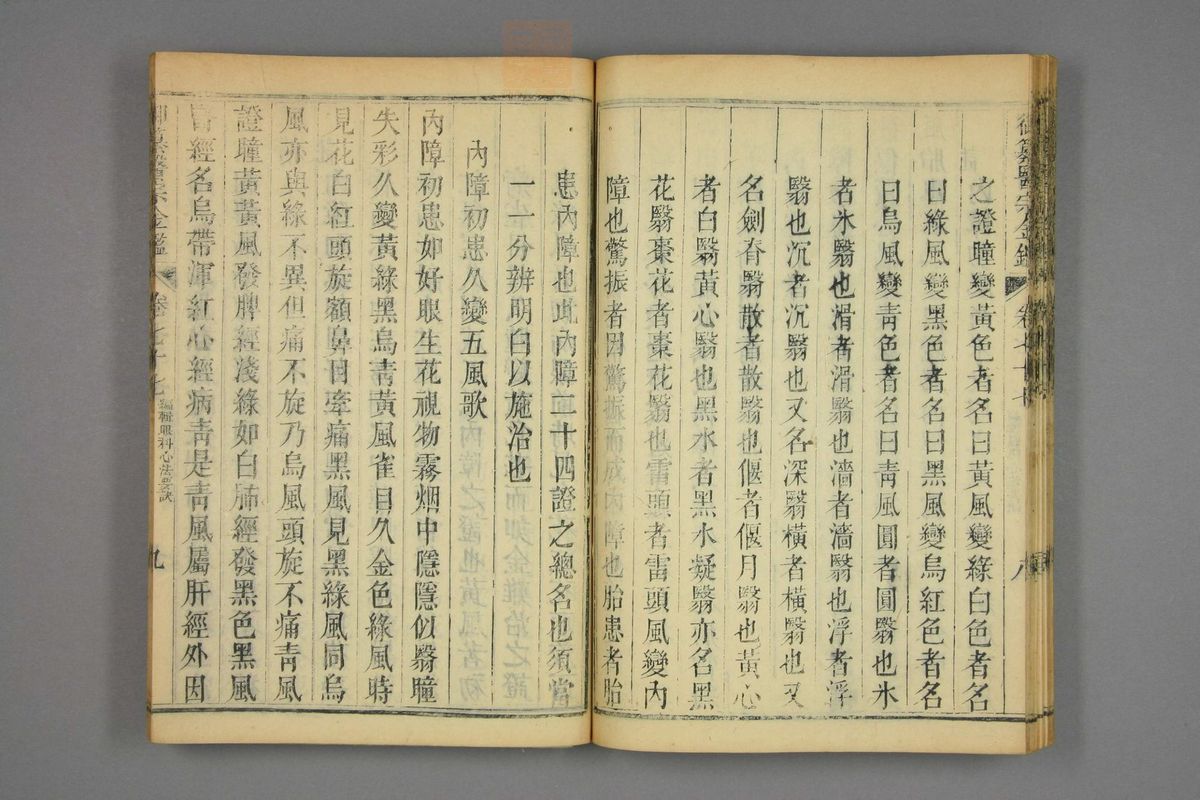 御纂醫宗金鑑 卷七十七 八
之證瞳變黃色者名曰黃風變綠白色者名
曰綠風變黑色者名曰黑風變烏紅色者名
曰烏風變青色者名曰青風圓者圓翳也氷
者氷翳也滑者滑翳也濇者濇翳也浮者浮
翳也沉者沉翳也又名深翳橫者橫翳也又
名劍脊翳散者散翳也偃者偃月翳也黃心
者白翳黃心翳也黑水者黑水凝翳亦名黑
花翳棗花者棗花翳也雷頭者雷頭風變內
障也驚振者因驚振而成內障也胎患者胎
患內障也此內障二十四證之總名也須當
一一分辨明白以施治也
內障初患久變五風歌
內障初患如好眼生花視物霧烟中隱隱似翳瞳
失彩久變黃綠黑烏青黃風雀目久金色綠風時
見花白紅頭旋額鼻目牽痛黑風見黑綠風同烏
風亦與綠不異但痛不旋乃烏風頭旋不痛青風
證瞳黃黃風發脾經淺綠如白肺經發黑色黑風
腎經名烏帶渾紅心經病青是青風屬肝經外因
御纂醫宗金鑑 卷七十七 編輯眼科心法要訣 九